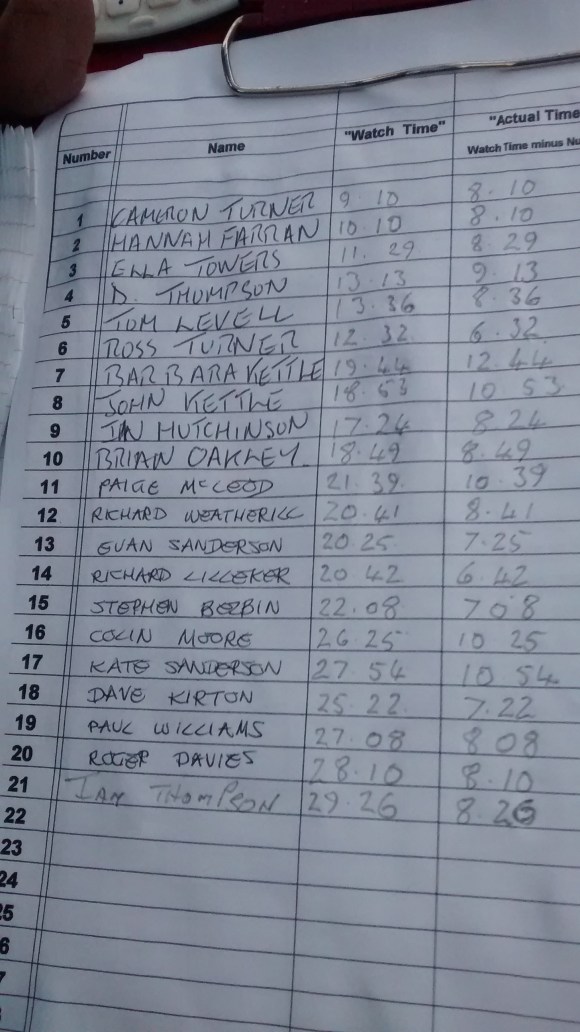 Number Name "Watch Time" "Actual Time
Watch Time minus Nu
1 CAMERON TURNER 9.10 8.10
2 HANNAH FARRAN 10.10 8.10
3 ELLA TOWERS 11.29 8.29
4 D. THOMPSON 13.13 9.13
5 TOM LEVELL 13.36 8.36
6 ROSS TURNER 12.32 6.32
7 BARBARA KETTLE 19.44 12.44
8 JOHN KETTLE 18.53 10.53
9 IAN HUTCHINSON 17.24 8.24
10 BRIAN OAKLEY 18.49 8.49
11 PAIGE McLEOD 21.39 10.39
12 RICHARD WEATHERILL 20.41 8.41
13 EVAN SANDERSON 20.25 7.25
14 RICHARD LILLEKER 20.42 6.42
15 STEPHEN 22.08 7 08
16 COLIN MOORE 26.25 10 25
17 KATE SANDERSON 27.54 10 54
18 DAVE KIRTON 25.22 7.22
19 PAUL WILLIAMS 27.08 8 08
20 ROGER DAVIES 28.10 8.10
21 IAN THOMPSON 29.26 8.26
22
23
24
5
6